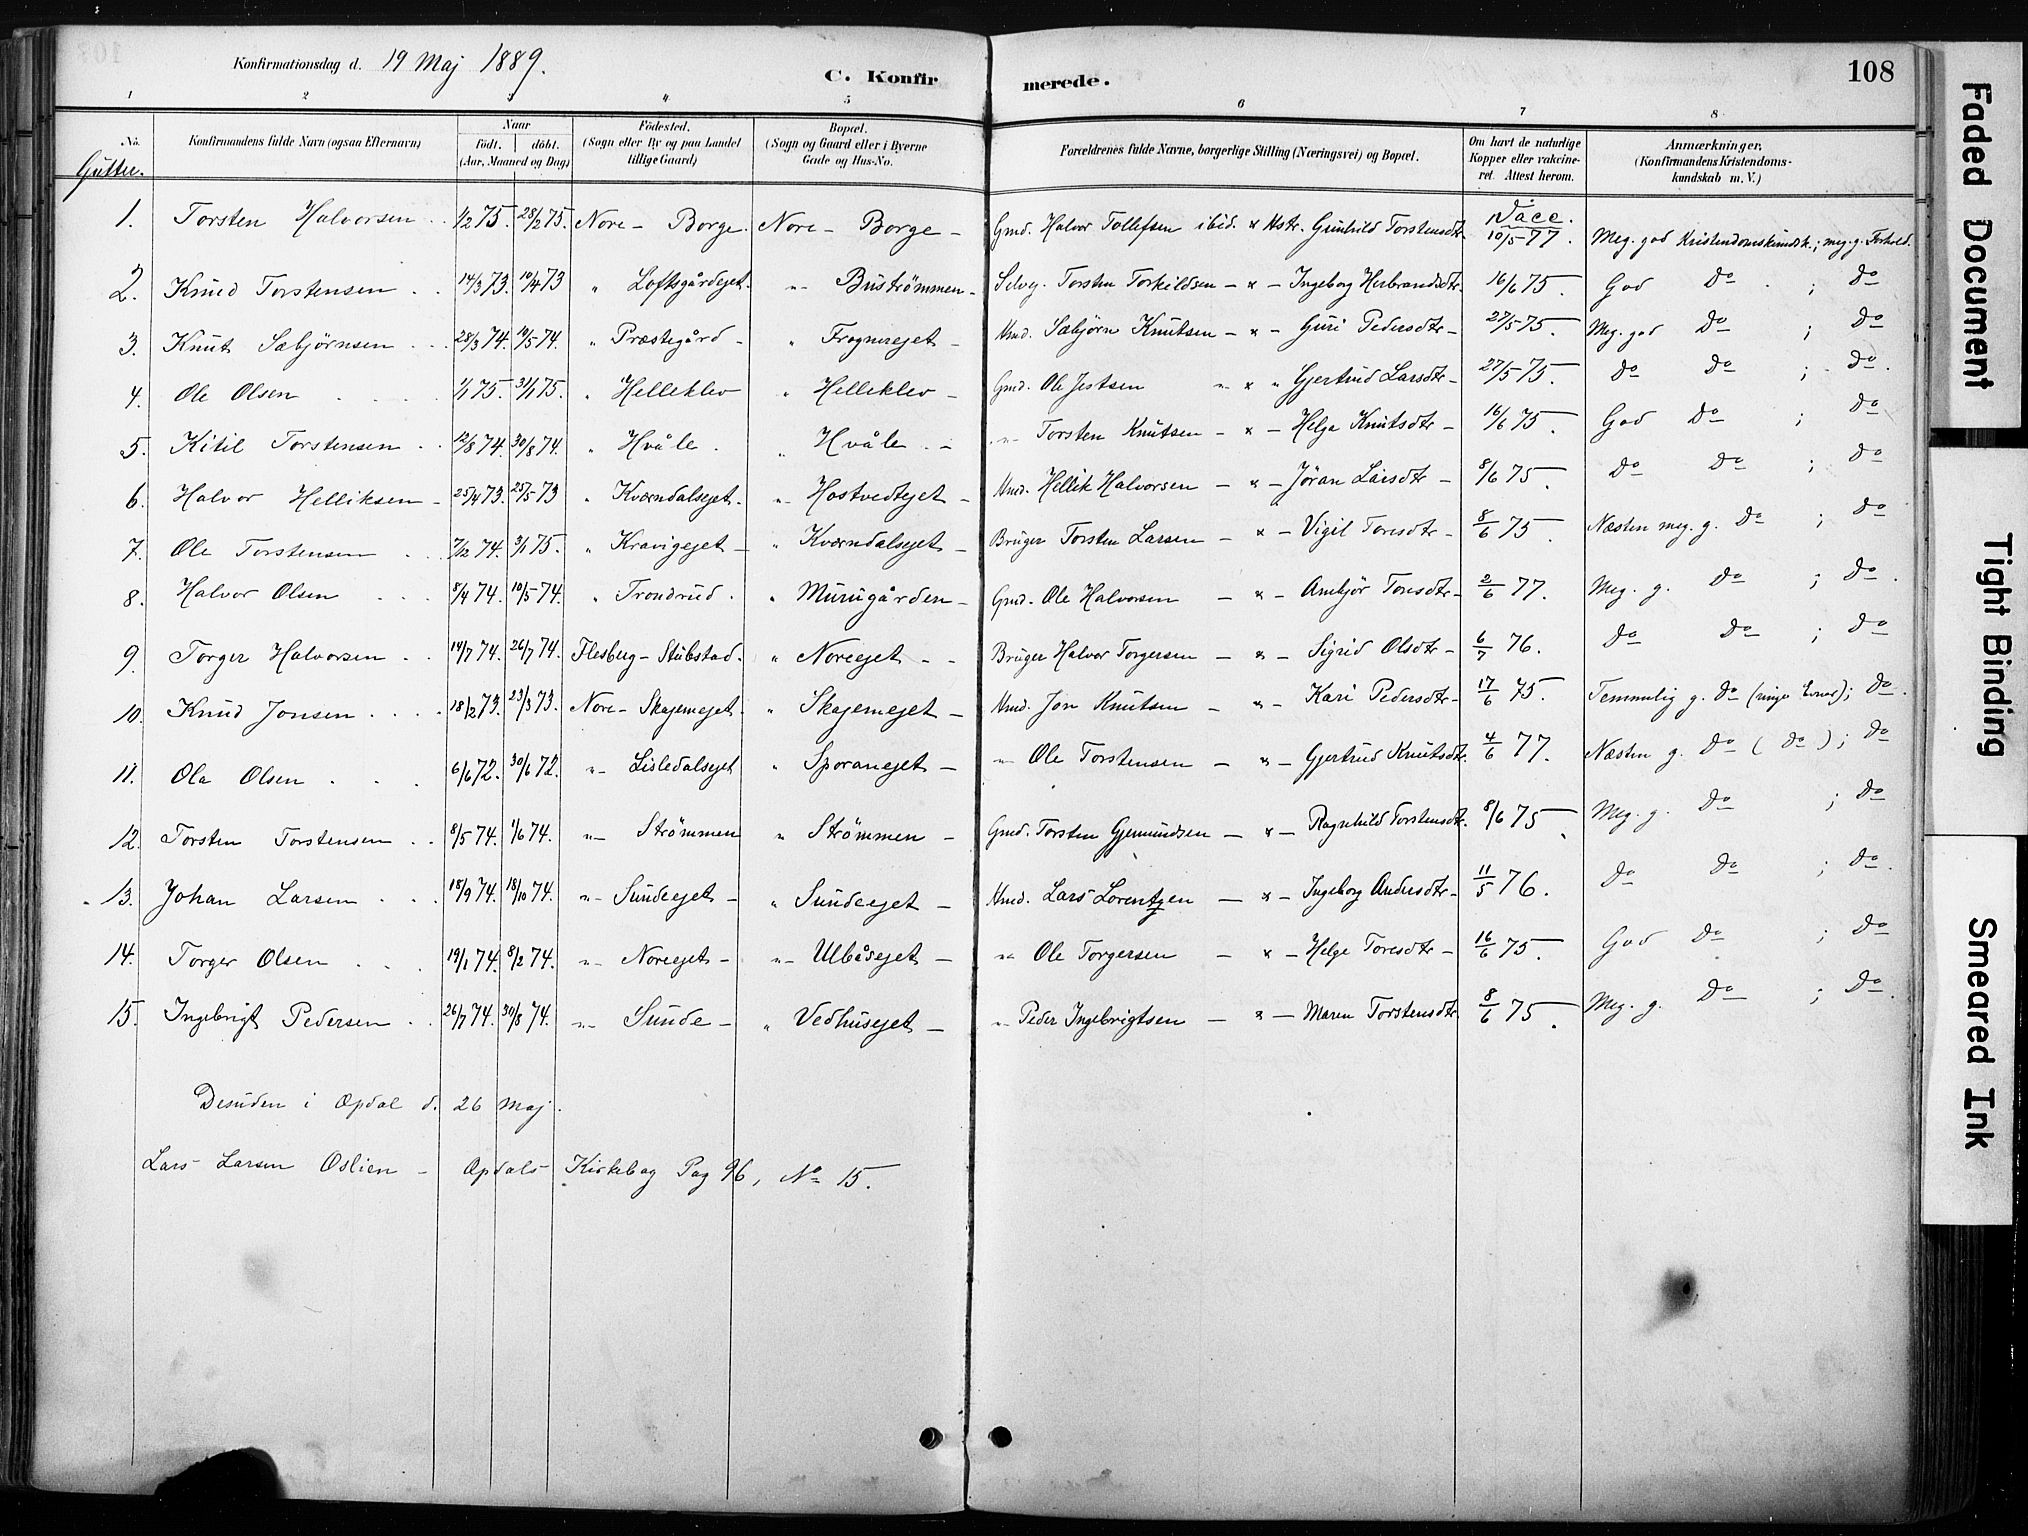 Konfirmationsdag d. 19 Maj 1889.
C. Konfirmerede.
108
1 2 3 4 5 6 7 8
No. Konfirmandens fulde Navn (ogsaa Efternavn) Naar födt. döbt. (Aar, Maaned og Dag) Födested. (Sogn eller By og paa Landet tillige Gaard) Bopæl. (Sogn og Gaard eller i Byerne Gade og Hus-No. Forældrenes fulde Navne, borgerlige Stilling (Næringsvei) og Bopæl. Om havt de naturlige Kopper eller vakcineret. Attest herom. Anmærkninger. (Konfirmandens Kristendomskundskab m. V.)
Gutter.
1. Torsten Halvorsen 1/2 75. 28/2 75. Nore - Borge. Nore - Borge - Gmd. Halvor Tollefsen ibid. x Hstr. Gunhild Torstensdtr. Vacc. 10/5 77. Meg. god Kristendomskundsk.; meg. g. Forhold.
2. Knud Torstensen 14/3 73. 10/4 73 " Loftsgårdejet. " Buströmmen - Selvej. Torsten Torkildsen - x - Ingeborg Herbrandsdtr. 16/6 75. God Do ; Do
3. Knut Sæbjørnsen 28/3 74. 14/5 74. " Præstegård - " Frognerejet - Hmd. Sæbjørn Knutsen - x - Guri Pedersdtr - 27/5 75. Meg. god Do ; Do
4. Ole Olsen 1/1 75. 31/1 75. " Helleklev " Helleklev - Gmd. Ole Jestsen " x " Gjertrud Larsdtr - 27/5 75. Do Do ; Do.
5. Kitil Torstensen 12/8 74. 30/8 74. " Hvåle. " Hvåle. - " Torsten Knutsen - x - Helga Knutsdtr - 16/6 75. God Do ; Do
6. Halvor Helliksen - 25/4 73. 25/5 73 " Kværndalsejet. " Hostvedtejet - Hmd. Hellik Halvorsen - x - Jöran Larsdtr - 8/6 75. Do Do ; Do
7. Ole Torstensen 7/12 74. 3/1 75. " Kravigejet - " Kværndalsejet - Bruger Torsten Larsen - x - Vigil Toresdtr - 8/6 75. Næsten meg. g. Do ; Do
8. Halvor Olsen 8/4 74. 10/5 74. " Trondrud. " Murugården - Gmd. Ole Halvorsen - x - Ambjör Toresdtr - 2/6 77. Meg. g. Do ; Do.
9. Torger Halvorsen 14/7 74. 26/7 74. Flesberg - Stubstad. " Noreejet - - Bruger Halvor Torgersen - x - Sigrid Olsdtr - 6/7 76. Do Do ; Do
10. Knud Jonsen 18/2 73. 23/3 73. Nore - Skajemejet. " Skajemejet - Hmd. Jon Knutsen - x - Kari Pedersdtr - 17/6 75. Temmelig g. Do (ringe Evner); Do.
11. Ola Olsen 6/6 72. 30/6 72. " Lisledalsejet " Sporanejet - " Ole Torstensen - x - Gjertrud Knutsdtr. 4/6 77. Næsten g. Do (Do); Do
12. Torsten Torstensen 8/5 74. 1/6 74. " Strömmen " Strömmen - Gmd. Torsten Gjermundsen - x - Ragnhild Torstensdtr. 8/6 75. Meg. g. Do ; Do
13. Johan Larsen 18/9 74. 18/10 74. " Sundeejet - " Sundeejet - Hmd. Lars Lorentzen - x - Ingeborg Andersdtr - 11/5 76. Do Do ; Do
14. Torger Olsen 19/1 74. 8/2 74. " Noreejet - " Ulbåsejet - " Ole Torgersen - x - Helge Toresdtr - 16/6 75. God Do ; Do
15. Ingebrigt Pedersen 26/7 74. 30/8 74. " Sunde - " Vedhusejet - " Peder Ingebrigtsen - x - Maren Torstensdtr. 8/6 75. Meg. g. Do ; Do.
Desuden i Opdal d. 26 Maj.
Lars Larsen Oslien - Opdals Kirkebog Pag 96, No 15.
Faded Document
Tight Binding
Smeared Ink